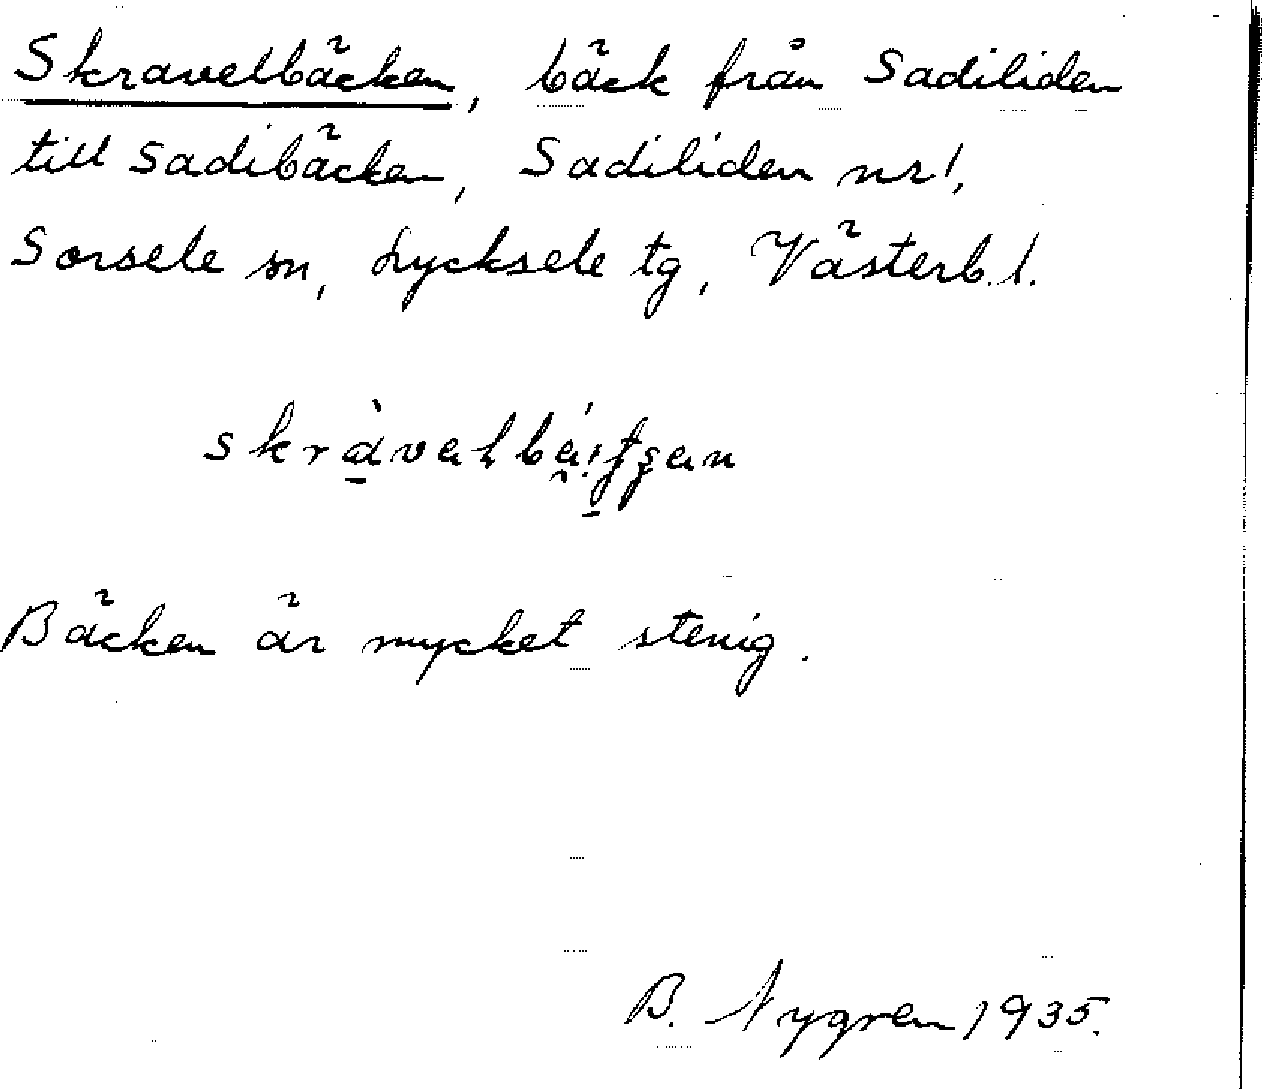 Skravelbäcken, bäck från Sadiliden
till Sadibäcken, Sadiliden nr 1,
Sorsele sn, Lycksele tg, Västerb. l.
Bäcken är mycket stenig.
B. Nygren 1935.